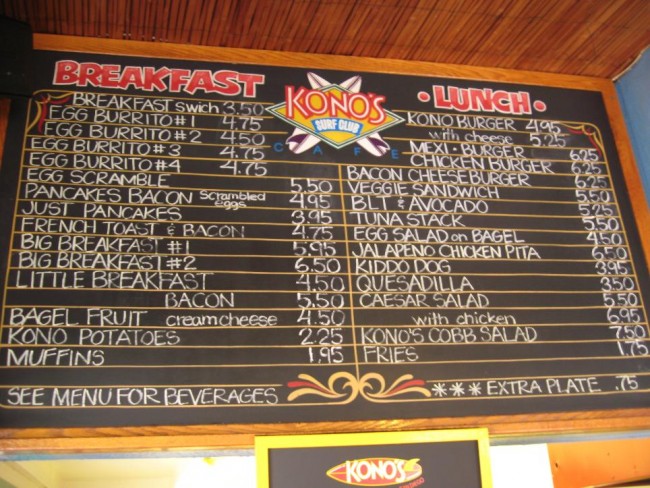 BREAKFAST
BREAKFAST swich 3.50
EGG BURRITO #1 4.75
EGG BURRITO #2 4.50
EGG BURRITO #3 4.75
EGG BURRITO #4 4.75
EGG SCRAMBLE 5.50
PANCAKES BACON Scrambled eggs 4.95
JUST PANCAKES 3.95
FRENCH TOAST & BACON 4.75
BIG BREAKFAST #1 5.95
BIG BREAKFAST #2 6.50
LITTLE BREAKFAST 4.50
BACON 5.50
BAGEL FRUIT cream cheese 4.50
KONO POTATOES 2.25
MUFFINS 1.95
SEE MENU FOR BEVERAGES
KONO'S
SURF CLUB
CAFE
• LUNCH •
KONO BURGER 4.95
with cheese 5.25
MEXI - BURGER 6.25
CHICKEN BURGER 6.25
BACON CHEESEBURGER 6.25
VEGGIE SANDWICH 5.50
BLT & AVOCADO 5.25
TUNA STACK 5.50
EGG SALAD on BAGEL 4.50
JALAPENO CHICKEN PITA 6.50
KIDDO DOG 3.95
QUESADILLA 3.50
CAESAR SALAD 5.50
with chicken 6.95
KONO'S COBB SALAD 7.50
FRIES 1.75
*** EXTRA PLATE .75
KONO'S